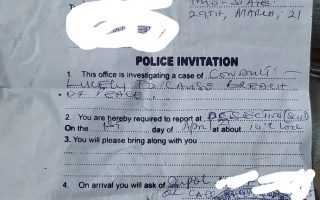 To
IMO-STATE
29TH, MARCH, 21
POLICE INVITATION
1. This office is investigating a case of CONDUCT –
LIKELY TO CAUSE BREACH
OF PEACE.
2. You are hereby required to report at
On the 1st day of April at about 10 o'clock
3. You will please bring along with you
4. On arrival you will ask of